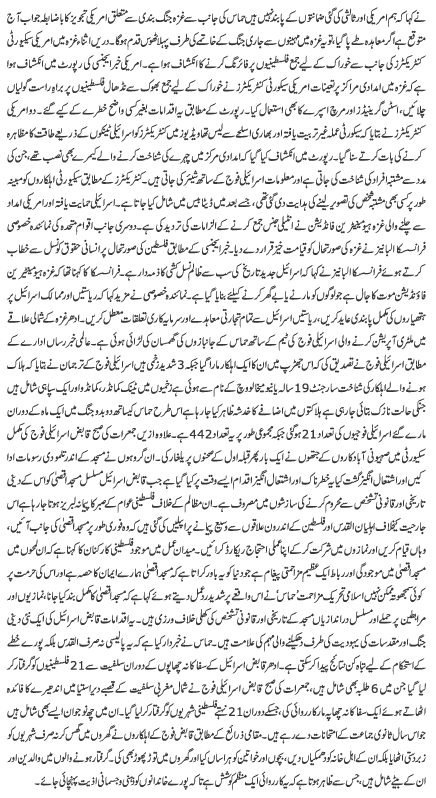 نے کہا کہ ہم امریکی اور ثالثی کی گئی ضمانتوں کے پابند نہیں ہیں حماس کی جانب سے غزہ جنگ بندی سے متعلق امریکی تجویز کا باضابطہ جواب آج
متوقع ہے اگر معاہدہ طے پا گیا، تو یہ غزہ میں مہینوں سے جاری جنگ کے خاتمے کی طرف پہلا ٹھوس قدم ہوگا۔ دریں اثناء غزہ میں امریکی سیکورٹی
کنٹریکٹرز کی جانب سے خوراک کے لیے جمع فلسطینیوں پر فائرنگ کا انکشاف ہوا ہے۔ امریکی خبر ایجنسی کی رپورٹ میں انکشاف ہوا کہ
غزہ میں امدادی مراکز پر تعینات امریکی سیکورٹی کنٹریکٹرز نے خوراک کے لیے جمع بھوک سے نڈھال فلسطینیوں پر براہ راست گولیاں
چلائیں، اسٹن گرینیڈز اور مرچ اسپرے کا بھی استعمال کیا۔ رپورٹ کے مطابق یہ اقدامات بغیر کسی واضح خطرے کے کیے گئے۔ دو امریکی
کنٹریکٹرز نے بتایا کہ سیکورٹی عملہ غیر تربیت یافتہ اور بھاری اسلحے سے لیس تھا ویڈیوز میں کنٹریکٹرز کو اسرائیلی ٹینکوں کے ذریعے طاقت کا مظاہرہ
کرنے کی بات کرتے سنا گیا۔ رپورٹ میں انکشاف کیا گیا کہ امدادی مرکز میں چہرے کی شناخت کرنے والے کیمرے بھی نصب تھے، جن کی
مدد سے مشتبہ افراد کی شناخت کی جاتی ہے اور معلومات اسرائیلی فوج کے ساتھ شیئر کی جاتی ہیں۔ کنٹریکٹرز کے مطابق سیکورٹی اہلکاروں کو مبینہ
طور پر کسی بھی مشتبہ شخص کی تصویر لینے کی ہدایت دی گئی تھی، جسے بعد میں ڈیٹا بیس میں شامل کیا جاتا ہے۔ اسرائیلی حمایت یافتہ اور امریکی امداد
سے چلنے والی غزہ ہیومینٹیرین فاؤنڈیشن نے انٹیلی جنس جمع کرنے کے الزامات کی تردید کی ہے۔ دوسری جانب اقوام متحدہ کی نمائندہ خصوصی
فرانسسکا البانیز نے غزہ کی صورتحال کو قیامت خیز قرار دے دیا۔ خبر ایجنسی کے مطابق فلسطین کی صورتحال پر انسانی حقوق کونسل سے خطاب
کرتے ہوئے فرانسسکا البانیز نے کہا کہ اسرائیل جدید تاریخ کی سب سے ظالم نسل کشی کا ذمہ دار ہے۔ فرانسسکا کا کہنا تھا کہ غزہ ہیومینٹیرین
فاؤنڈیشن موت کا جال ہے جو لوگوں کو مارنے یا بے گھر کرنے کیلئے بنایا گیا ہے۔ نمائندہ خصوصی نے مزید کہا کہ ریاستیں اور ممالک اسرائیل پر
ہتھیاروں کی مکمل پابندی عائد کریں، ریاستیں اسرائیل سے تمام تجارتی معاہدے اور سرمایہ کاری تعلقات معطل کریں۔ ادھر غزہ کے شمالی علاقے
میں ملٹری آپریشن کرنے والی اسرائیلی فوج کی ٹیم کے ساتھ حماس کے جانبازوں کی گھمسان کی لڑائی ہوئی ہے۔ عالمی خبر رساں ادارے کے
مطابق اسرائیلی فوج نے تصدیق کی کہ اس جھڑپ میں ان کا ایک اہلکار مارا گیا جبکہ 3 شدید زخمی ہیں اسرائیلی فوج کے ترجمان نے بتایا کہ ہلاک
ہونے والے اہلکار کی شناخت سارجنٹ 19 سالہ یانیو میخالووچ کے نام سے ہوئی ہے زخمیوں میں ٹینک کمانڈر، کمانڈو اور ایک سپاہی شامل ہیں
جنکی حالت نازک بتائی جا رہی ہے ہلاکتوں میں اضافے کا خدشہ ظاہر کیا جا رہا ہے اس طرح حماس کیساتھ دوبدو جنگ میں ایک ماہ کے دوران
مارے گئے اسرائیلی فوجیوں کی تعداد 21 ہوگئی جبکہ مجموعی طور پر یہ تعداد 442 ہے۔ علاوہ ازیں جمعرات کی صبح قابض اسرائیلی فوج کی مکمل
سیکورٹی میں صہیونی آبادکاروں کے جتھوں نے ایک بار پھر قبلہ اول کے صحنوں پر یلغار کی۔ ان گروہوں نے مسجد کے اندر تلمودی رسومات ادا
کیں اور اشتعال انگیز گشت کیا یہ خطرناک اور اشتعال انگیز اقدام ایسے وقت پر کیا گیا ہے جب قابض اسرائیل مسجد اقصیٰ کو اس کے دینی
تاریخی اور قانونی تشخص سے محروم کرنے کی سازشوں میں مصروف ہے۔ ان مظالم کے خلاف فلسطینی عوام کے صبر کا پیمانہ لبریز ہوتا جا رہا ہے اس
جارحیت کیخلاف اہلیان القدس اور فلسطین کے اندرون علاقوں سے وسیع پیمانے پر اپیلیں کی گئی ہیں کہ وہ فوری طور پر مسجد اقصیٰ کی جانب آئیں،
وہاں قیام کریں اور نمازوں میں شرکت کر کے اپنا عملی احتجاج ریکارڈ کرائیں۔ میدان عمل میں موجود فلسطینی کارکنان کا کہنا ہے کہ ان لمحوں میں
مسجد اقصیٰ میں موجودگی اور رباط ایک عظیم مزاحمتی پیغام ہے جو دنیا کو یہ باور کراتا ہے کہ مسجد اقصیٰ ہمارے ایمان کا حصہ ہے اور اس کی حرمت پر
کوئی سمجھوتہ ممکن نہیں اسلامی تحریک مزاحمت 'حماس' نے اس واقعے پر شدید رد عمل دیتے ہوئے کہا ہے کہ مسجد اقصیٰ کا مکمل بند کیا جانا، نمازیوں اور
مرابطین پر حملے اور مسلسل دراندازیاں مسجد کی تاریخی اور قانونی تشخص کی کھلی خلاف ورزی ہیں۔ یہ اقدامات قابض اسرائیل کی ایک نئی دینی
جنگ اور مقدسات کی یہودیت کی طرف دھکیلنے والی مہم کی علامت ہیں۔ حماس نے خبردار کیا ہے کہ یہ پالیسی نہ صرف القدس بلکہ پورے خطے
کے استحکام کے لیے تباہ کن نتائج پیدا کر سکتی ہے۔ ادھر قابض اسرائیل کے سفاکانہ چھاپوں کے دوران سلفیت سے 21 فلسطینیوں کو گرفتار کر
لیا گیا جن میں 6 طلبہ بھی شامل ہیں، جمعرات کی صبح قابض اسرائیلی فوج نے شمال مغربی سلفیت کے قصبے دیراستیا میں اندھیرے کا فائدہ
اٹھاتے ہوئے ایک سفاکانہ چھاپہ مار کارروائی کی، جسکے دوران 21 نہتے فلسطینی شہریوں کو گرفتار کر لیا گیا۔ ان میں چھ نوجوان ایسے بھی شامل ہیں
جو اس سال ثانوی جماعت کے امتحانات دے رہے تھے۔ مقامی ذرائع کے مطابق قابض اسرائیلی فوج نے گھروں میں گھس کر نہ صرف شہریوں کو
زبردستی اٹھایا بلکہ ان کے اہل خانہ کو دھمکیاں دیں، بچوں اور خواتین کو ہراساں کیا اور گھروں میں توڑ پھوڑ بھی کی۔ گرفتار ہونے والوں میں والدین اور
ان کے بیٹے شامل ہیں، جس سے ظاہر ہوتا ہے کہ یہ کارروائی ایک منظم کوشش ہے تاکہ پورے خاندانوں کو ذہنی و جسمانی اذیت پہنچائی جائے۔